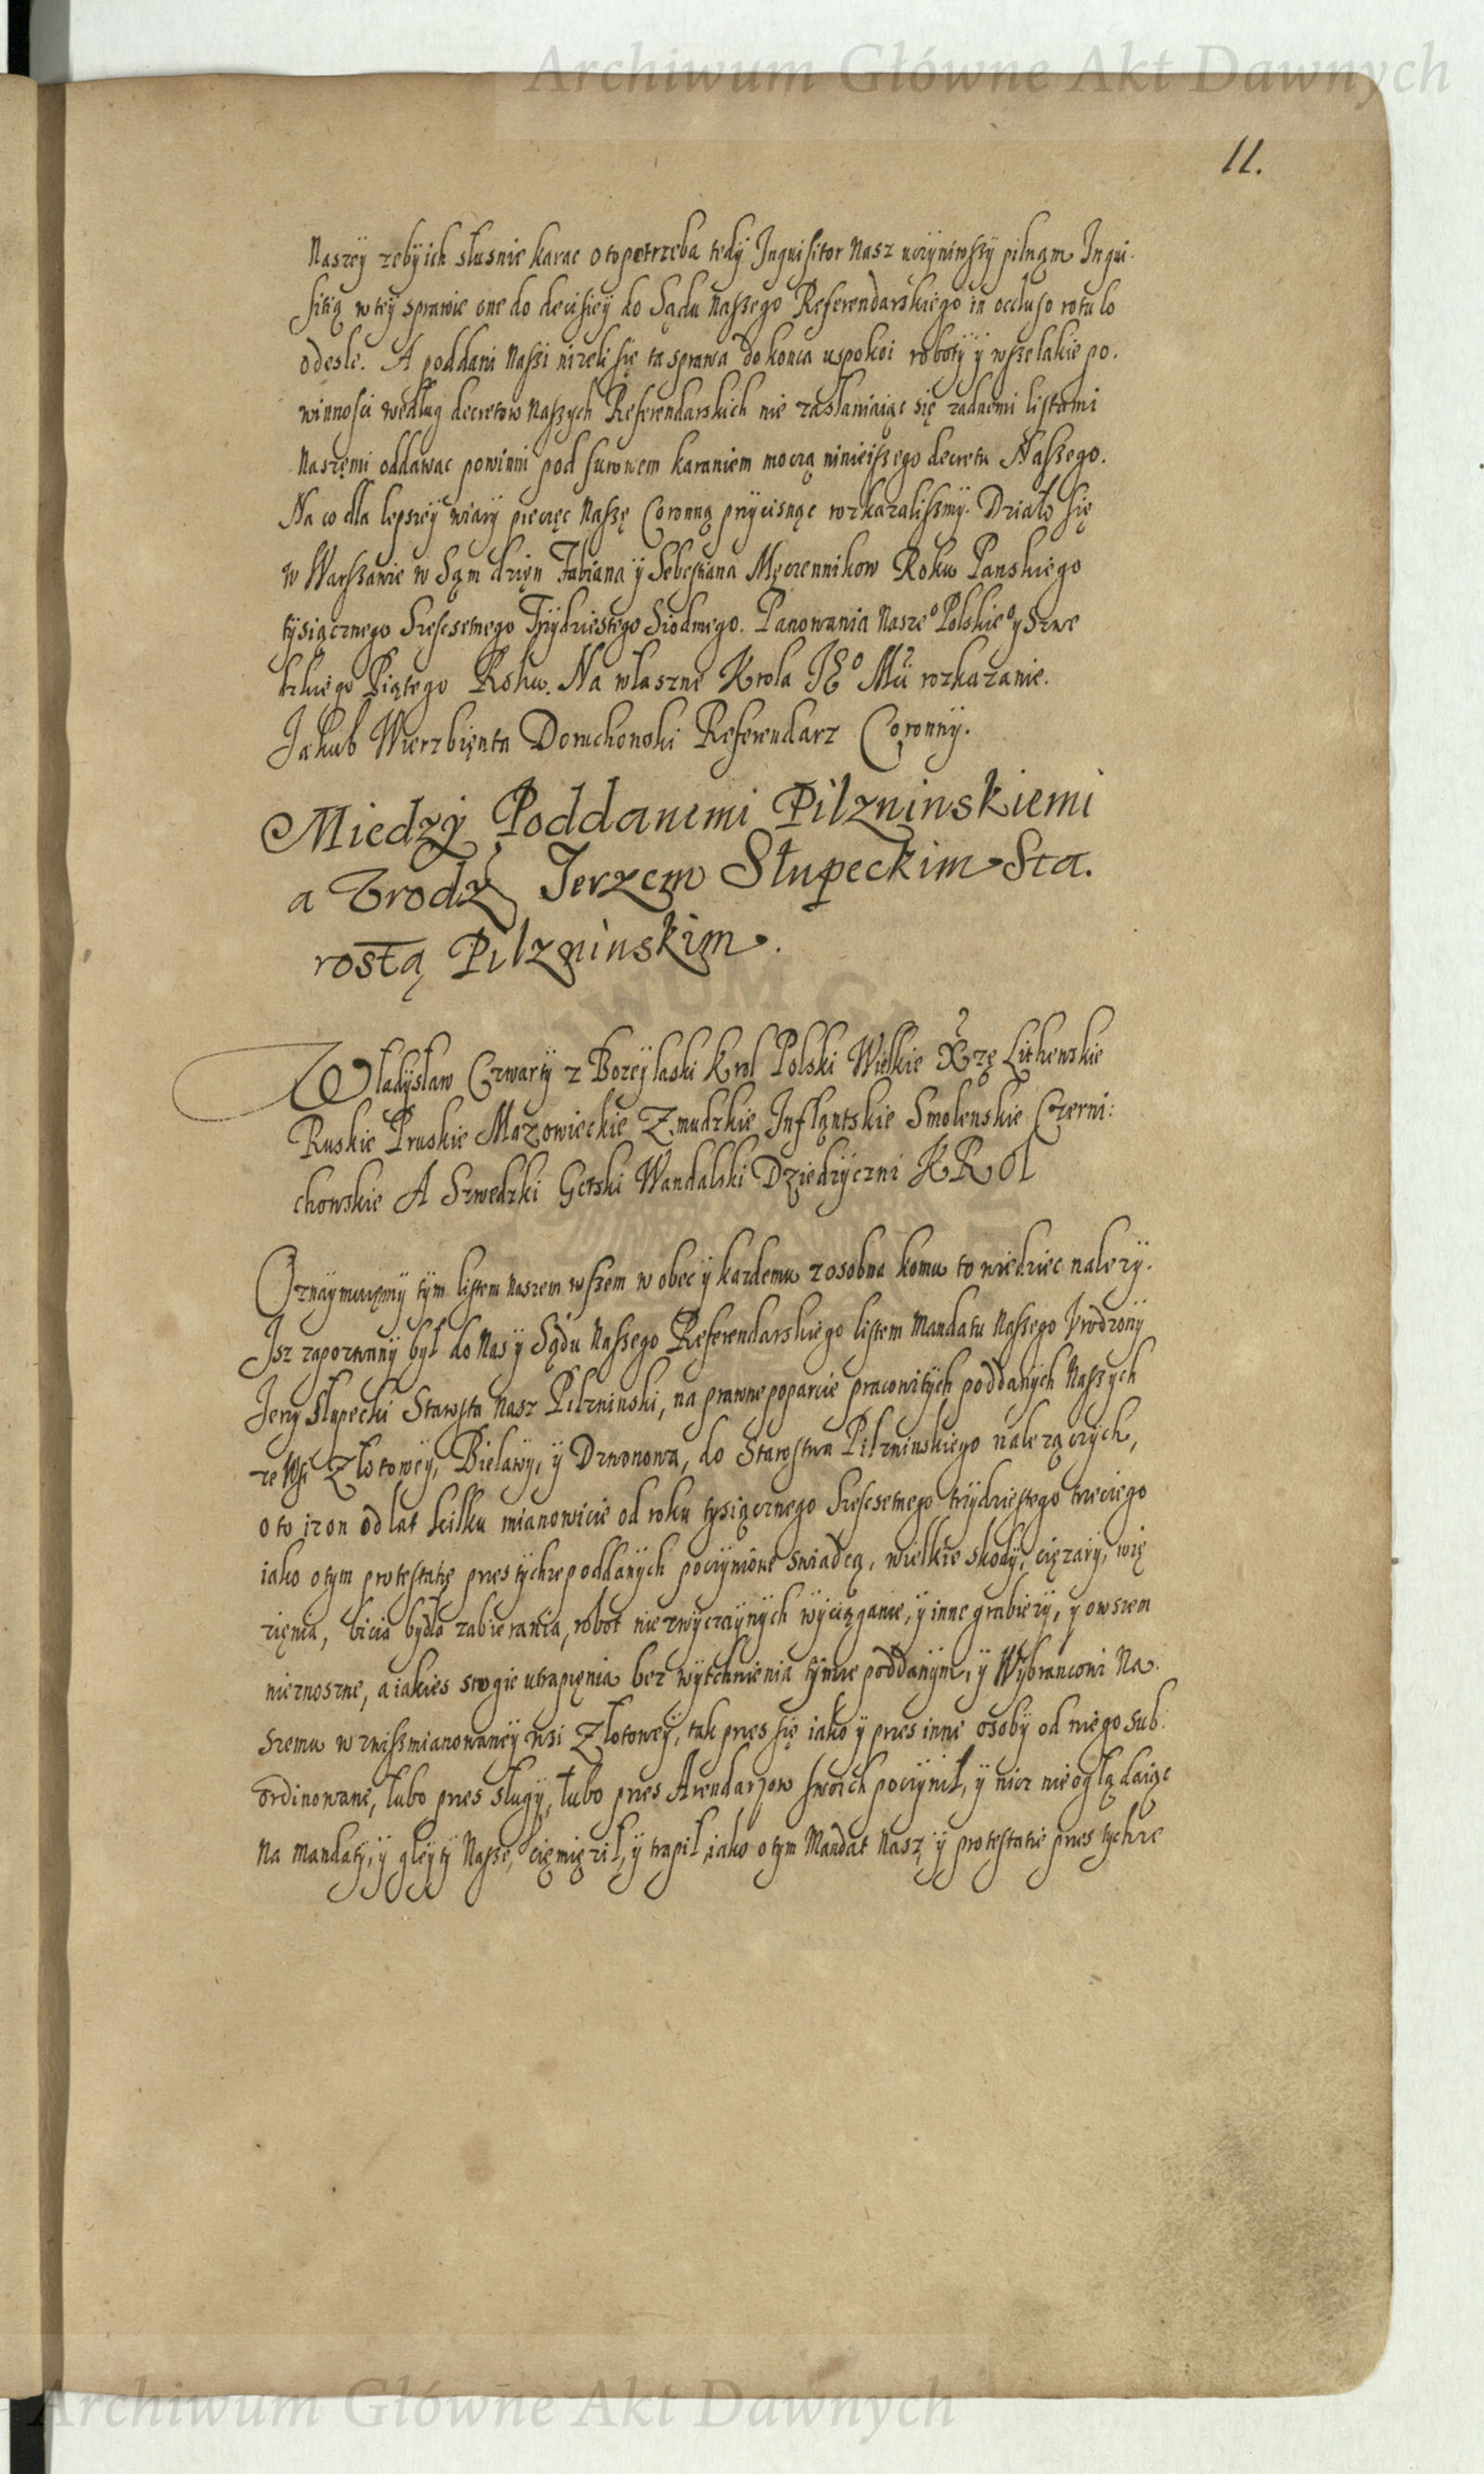 Archiwum Główne Akt Dawnych
11.
Naszey zeby ich slusnie karac o to potrzeba tedy Inquisitor Nasz uczyniwszy pilnąm Inqui-
sitią w tey sprawie one do decisiey do Sądu Naszego Referendarskiego in occluso rotulo
odesle. A poddani Naszi nizeli się ta sprawa do konca uspokoi roboty y wszelakie po.
winnosci według decretow Naszych Referendarskich nie zasłaniaiąc się zadnemi listami
Naszemi oddawac powinni pod surowem karaniem mocą ninieiszego decretu Naszego.
Na co dla lepszey wiary pieczęc Naszę Coronną przycisnąc rozkazaliszmy. Działo się
w Warszawie w Sąm dzięn Fabiana y Sebestiana Męczennikow Roku Panskiego
tysiącznego Szescsetnego Trzydziestego Siodmego. Panowania Nasze⁰ Polskie⁰ y Szwe
dzkiego Piątego Roku. Na właszne Krola JE⁰ Mci rozkazanie.
Jakub Wierzbięnta Doruchowski Referendarz Coronny.
Miedzy Poddanemi Pilzninskiemi
a Vrodz Jerzem Słupeckim Sta.
rostą Pilzninskim.
Władysław Czwarty z Bozey laski Krol Polski Wielkie Xzę Lithewskie
Ruskie Pruskie Mazowieckie Zmudzkie Infląntskie Smolenskie Czerni:
chowskie A Szwedzki Gotski Wandalski Dziedzyczni KROl
Oznaymuięmy tym listem naszem wszem w obec y kazdemu z osobna komu to wiedziec nalezy.
Isz zapozwany był do Nas y Sądu Naszego Referendarskiego listem Mandatu Naszego Vrodzony
Jerzy Słupecki Starosta Nasz Pilzninski, na prawne poparcie pracowitych poddanych Naszych
ze Wsi Złotowey, Bielawy, y Drwonowa, do Starostwa Pilzninskiego nalezących,
o to iz on od lat kilku mianowicie od roku tysiącznego Szescsetnego trzydziestego trzeciego
iako o tym protestatię przes tychze poddanych poczynione swiadczą, wielkie skody, cięzary, wię
zięnia, bicia bydła zabierania, robot niezwyczaynych wyciąganie, y inne grabiezy, y owszem
nieznoszne, a iakies srogie utrapięnia bez wytchnienia tymze poddanym, y Wybranconi Na.
szemu w zwiszmianowaney wsi Złotowey, tak przes się iako y przes inne osoby od niego sub.
ordinowane, lubo przes sługy, lubo przes Arendarzow swoich poczynił, y nicz nie oglądaiąc
Na mandaty, y gleyty Nasze, cięmięził, y trapił, iako o tym Mandat Nasz y protestatie przes tychze
Archiwum Główne Akt Dawnych